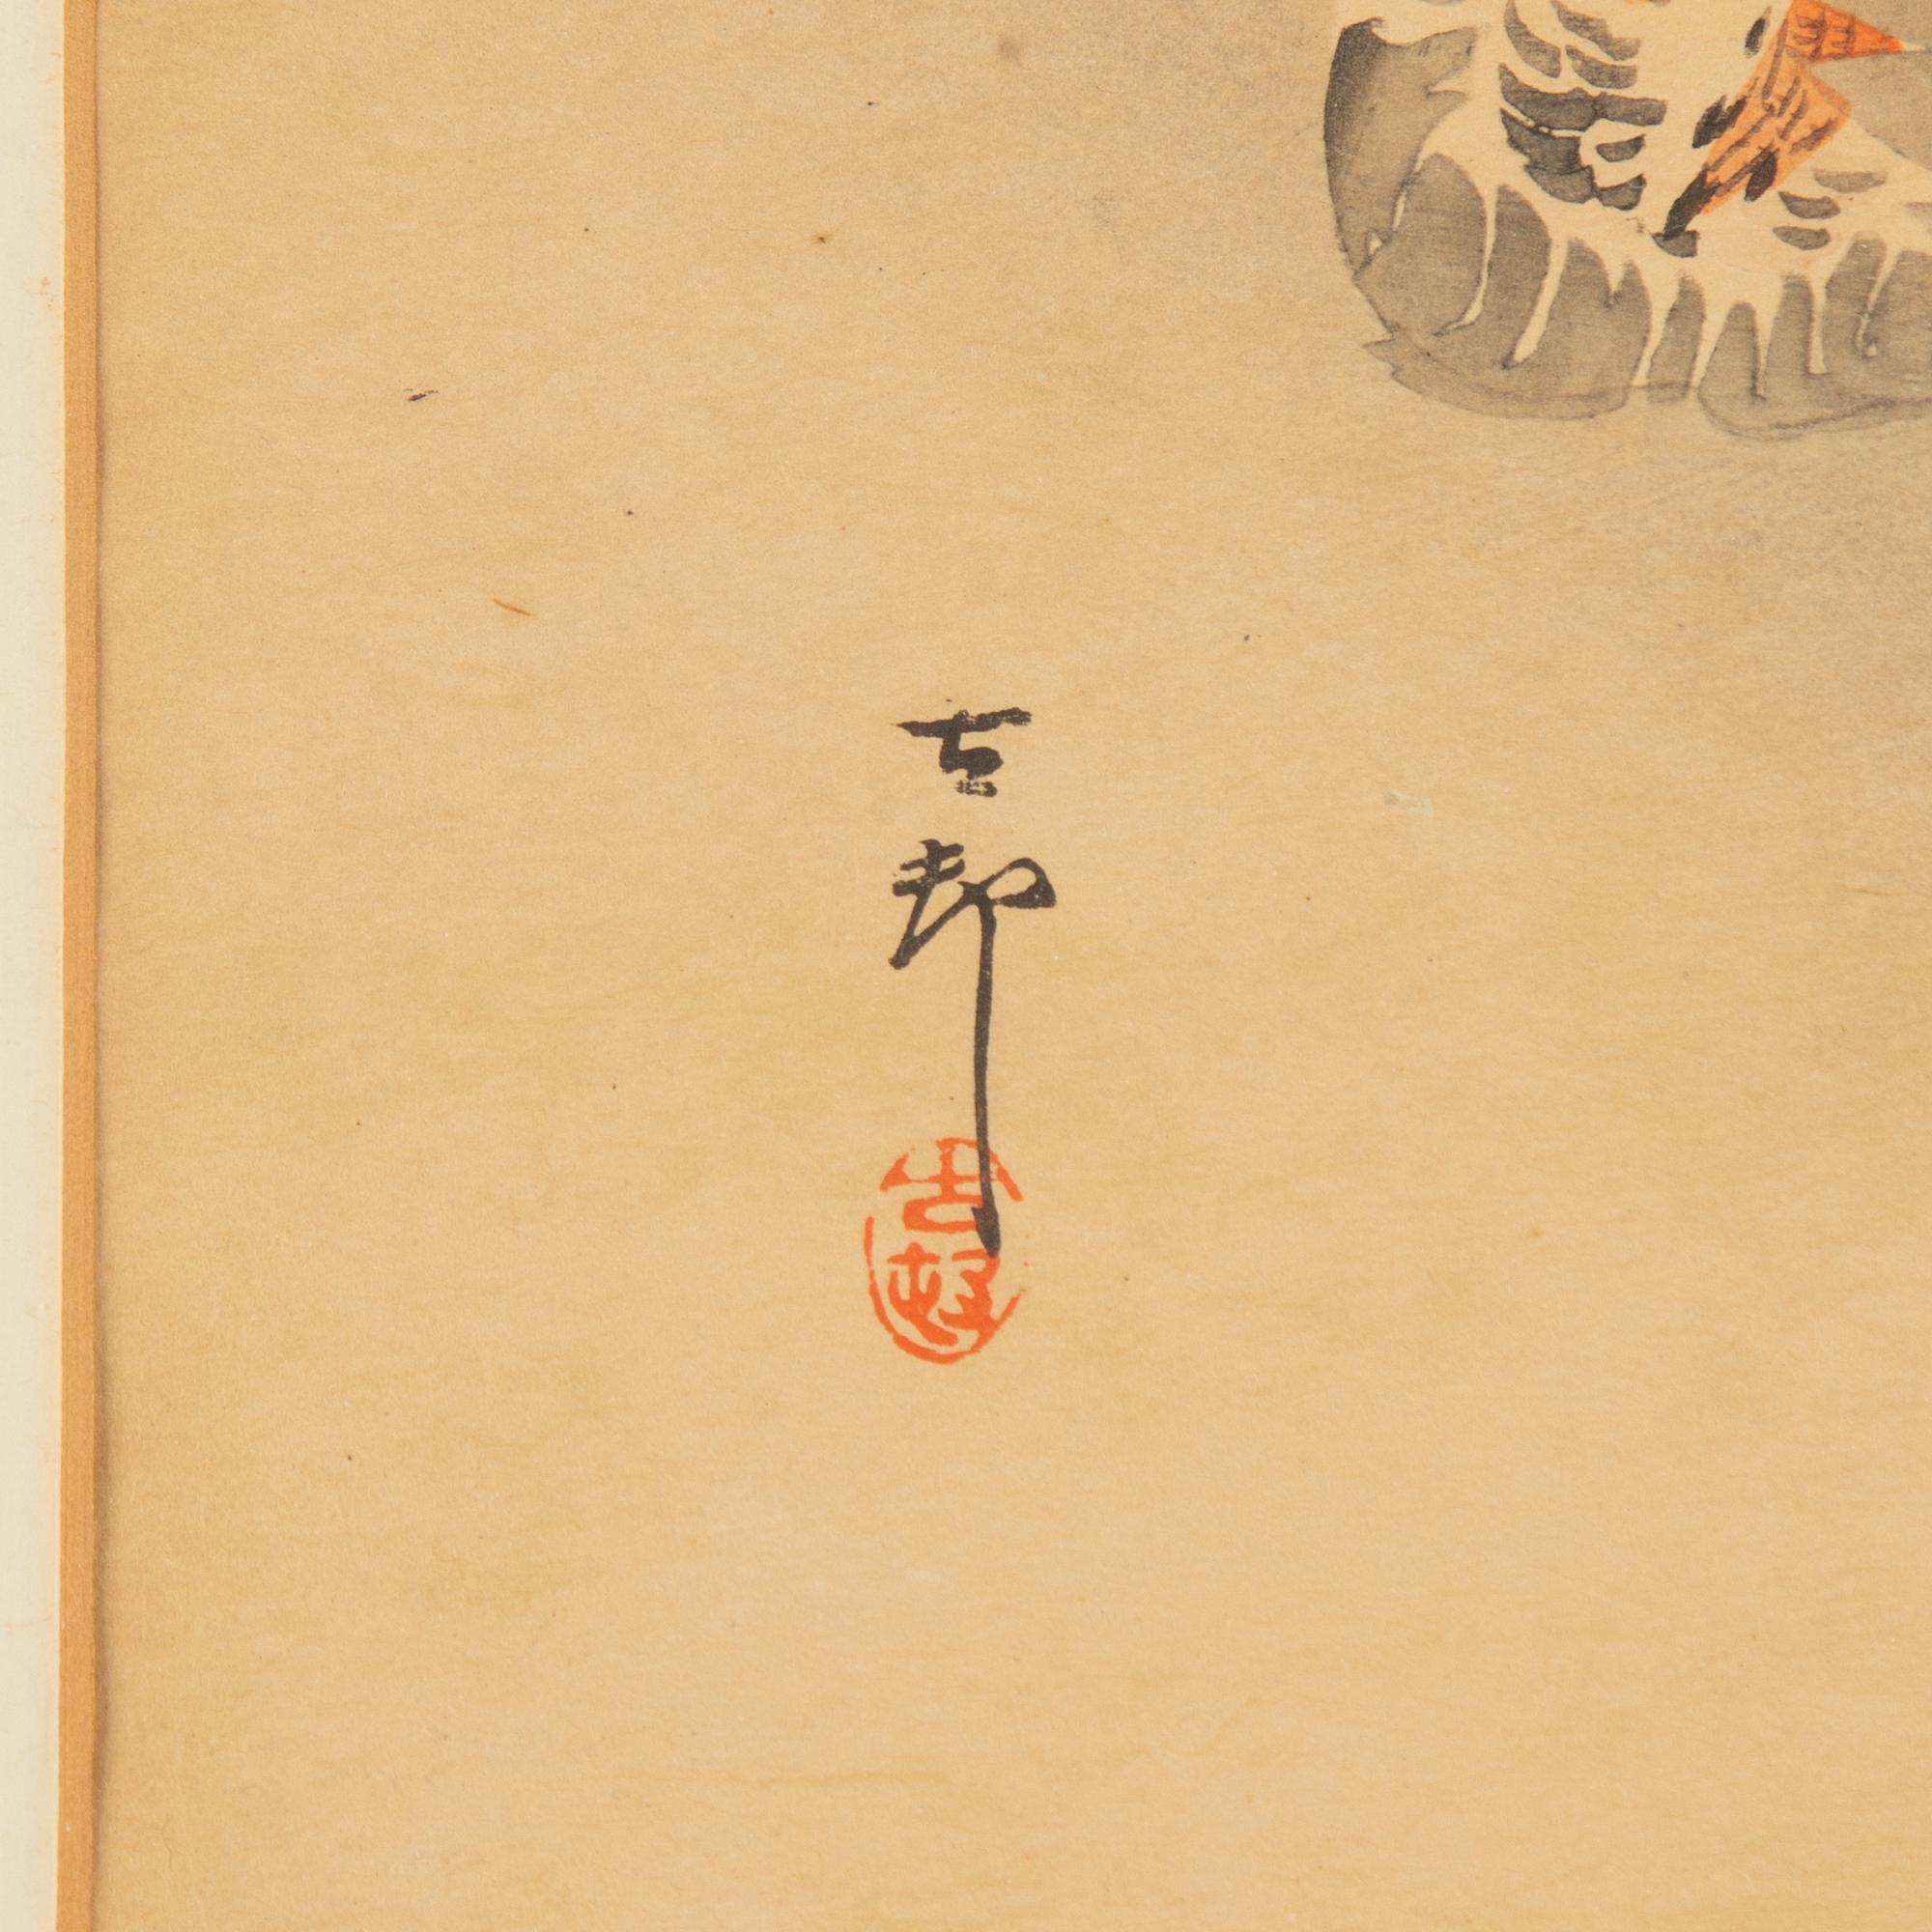 古邨
古邨